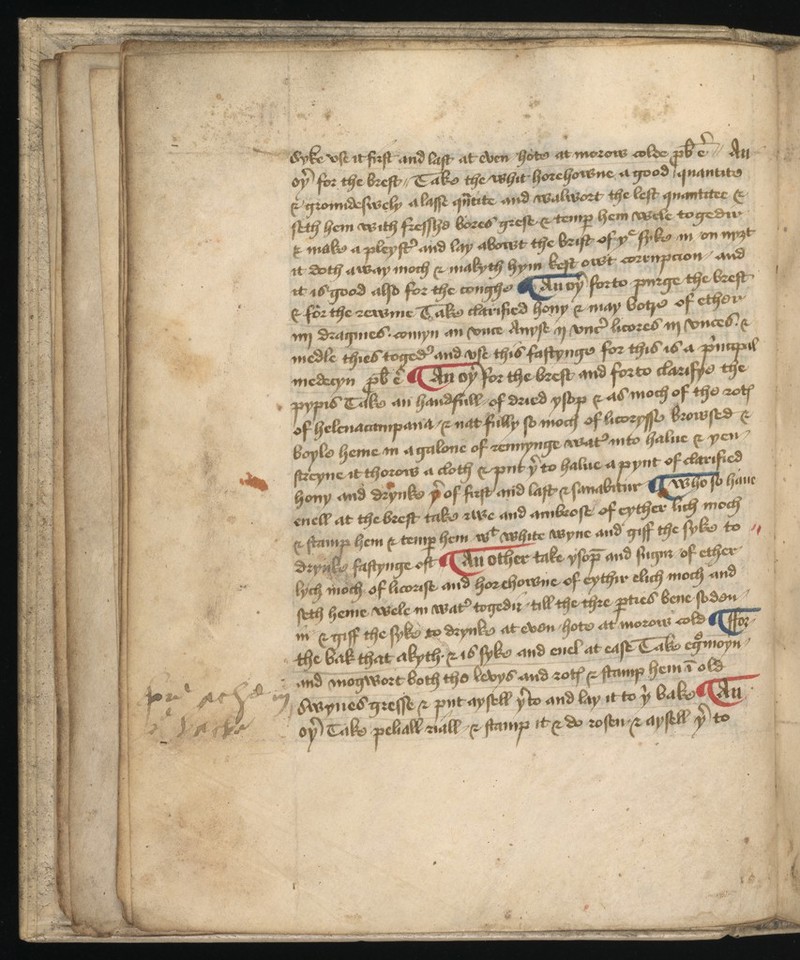 Syke vse it first and last at even hote at morow colde p̱b̄ ē // An
oy̅ for the brest // Take the whit horehowne a good quantite
& growndeswely a lasse q̄ntite and walwort the lest quantitee &
seth hem with fresshe bores grese & temp̱ hem wele togedir
& make a pleystʳ and lay abowt the brist of yᵉ syke in on nyȝt
it doth away moch & makyth hym kest owt corrupcion and
it is good also for the conghe ¶ An oy̅ forto purge the brest
& for the rewme Take clarified hony & may botre of ether
iiij dragmes comyn an vnce Anyse ij vncꝭ licores iij vnces &
medle thies togedʳ and vse this fastynge for this is a pⁱncipil
medecyn p̱b̄ ē ¶ An oy̅ for the brest and forto clarifye the
pypis Take an handfull of dried ysop̱ & as moch of the rotꝭ
of helenacampana & nat fully so moch of licorysse browsed &
boyle heme in a galone of rennynge watʳ into halue & yen
streyne it thorow a cloth & put y̅to halue a pynt of clarified
hony and drynke y̅ of first and last & sanabitur ¶ Who so haue
euell at the brest take rwe and ambrose of eyther lich moch
& stamp hem & temp̱ hem wᵗ white wyne and giff the syke to
drynke fastynge oft ¶ An other take ysop̱ and sugur of ether
lych moch of licorise and horehowne of eythir elich moch and
seth heme wele in watʳ togedir till the thre p̱ties bene soden
in & giff the syke to drynke at even hote at morow cold ¶ ffor
the bak that akyth & is syke and euel at ease Take egᵉmoyn
and mogwort both the levys and rotꝭ & stamp hem ī old
swynes gresse & put aysell y̅to and lay it to y̅ bake ¶ An
oy̅ Take peliall riall & stamp it & do rosen & aysell y̅ to